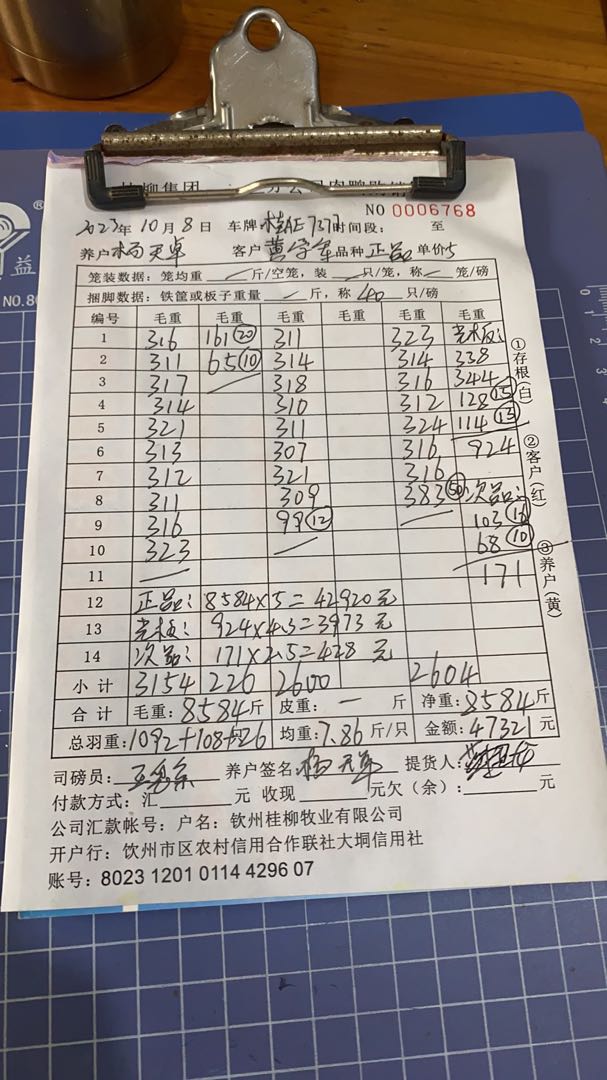 桂柳集团
NO 0006768
2023年10月8日 车牌:桂AE7377 时间段: 至
养户 杨天卓 客户 品种 正品 单价5
笼装数据:笼均重 — 斤/空笼,装 — 只/笼,称 — 笼/磅
捆脚数据:铁筐或板子重量 — 斤,称 40 只/磅
编号 毛重 毛重 毛重 毛重 毛重 毛重
1 316 161 20 311 323
2 311 65 10 314 314 338
3 317 — 318 316 344
4 314 310 312 128 15
5 321 311 324 114 13
6 313 307 316 924
7 312 321 316
8 311 309 383 50 次品:
9 316 99 12 — 103
10 323 — 68 10
11 — 171
12 正品:8584×5=42920元
13 924×4.3=3973元
14 次品:171×2.5=428元
小计 3154 226 2600 2604
合计 毛重:8584斤 皮重:— 斤 净重:8584斤
总羽重:1092+108+26 均重:7.86斤/只 金额:47321元
司磅员: 养户签名:杨天卓 提货人:
付款方式:汇 元 收现 元 欠(余): 元
公司汇款帐号:户名:钦州桂柳牧业有限公司
开户行:钦州市区农村信用合作联社大垌信用社
账号:8023 1201 0114 4296 07
①存根(白)
②客户(红)
③养户(黄)
益
NO.80